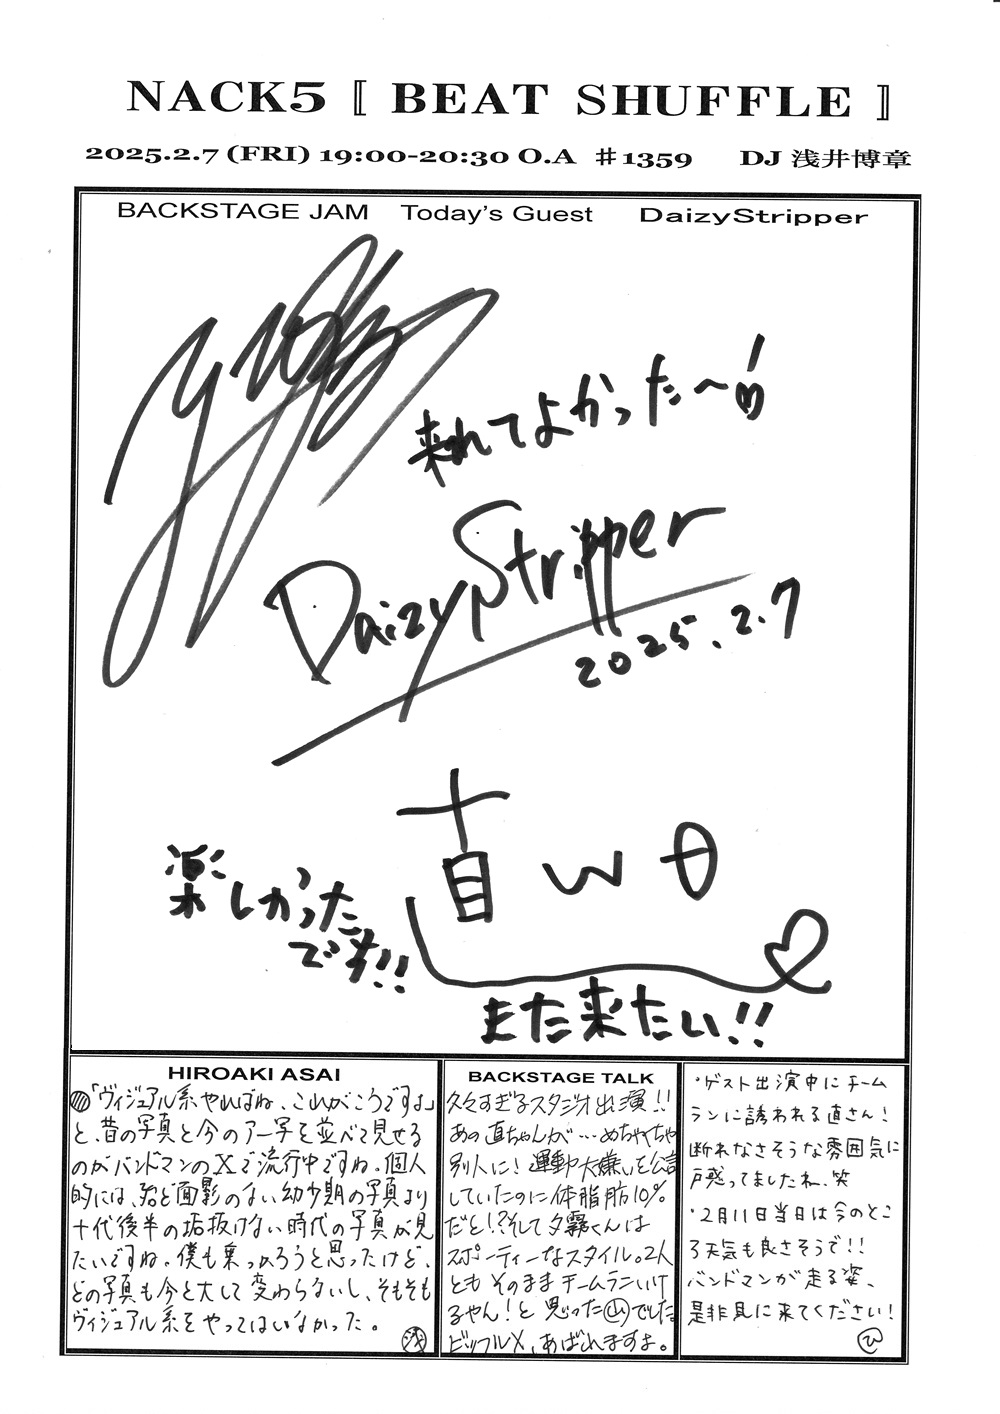 NACK5 〚 BEAT SHUFFLE 〛
2025.2.7 (FRI) 19:00-20:30 O.A ＃1359 DJ 浅井博章
BACKSTAGE JAM Today's Guest DaizyStripper
来れてよかった〜
DaizyStripper
2025.2.7
直
楽しかった
です!!
また来たい!!
HIROAKI ASAI
「ヴィジュアル系やればね、これがこうですよ」
と、昔の写真と今のアー写を並べて見せる
のがバンドマンのXで流行中ですね。個人
的には、殆ど面影のない幼少期の写真より
十代後半の垢抜けない時代の写真が見
たいですね。僕も乗っかろうと思ったけど、
どの写真も今と大して変わらないし、そもそも
ヴィジュアル系をやってはいなかった。
浅
BACKSTAGE TALK
久々すぎるスタジオ出演!!
あの直ちゃんが…めちゃくちゃ
別人に!運動大嫌いを公言
していたのに体脂肪10%
だと!?そして夕霧くんは
スポーティーなスタイル。2人
ともそのままチームラニいけ
るやん!と思った山でした
ビッフルX、あばれますよ。
・ゲスト出演中にチーム
ランに誘われる直さん!
断れなさそうな雰囲気に
戸惑ってましたね、笑
・2月11日当日は今のとこ
ろ天気も良さそうで!!
バンドマンが走る姿、
是非見に来てください!
ひ